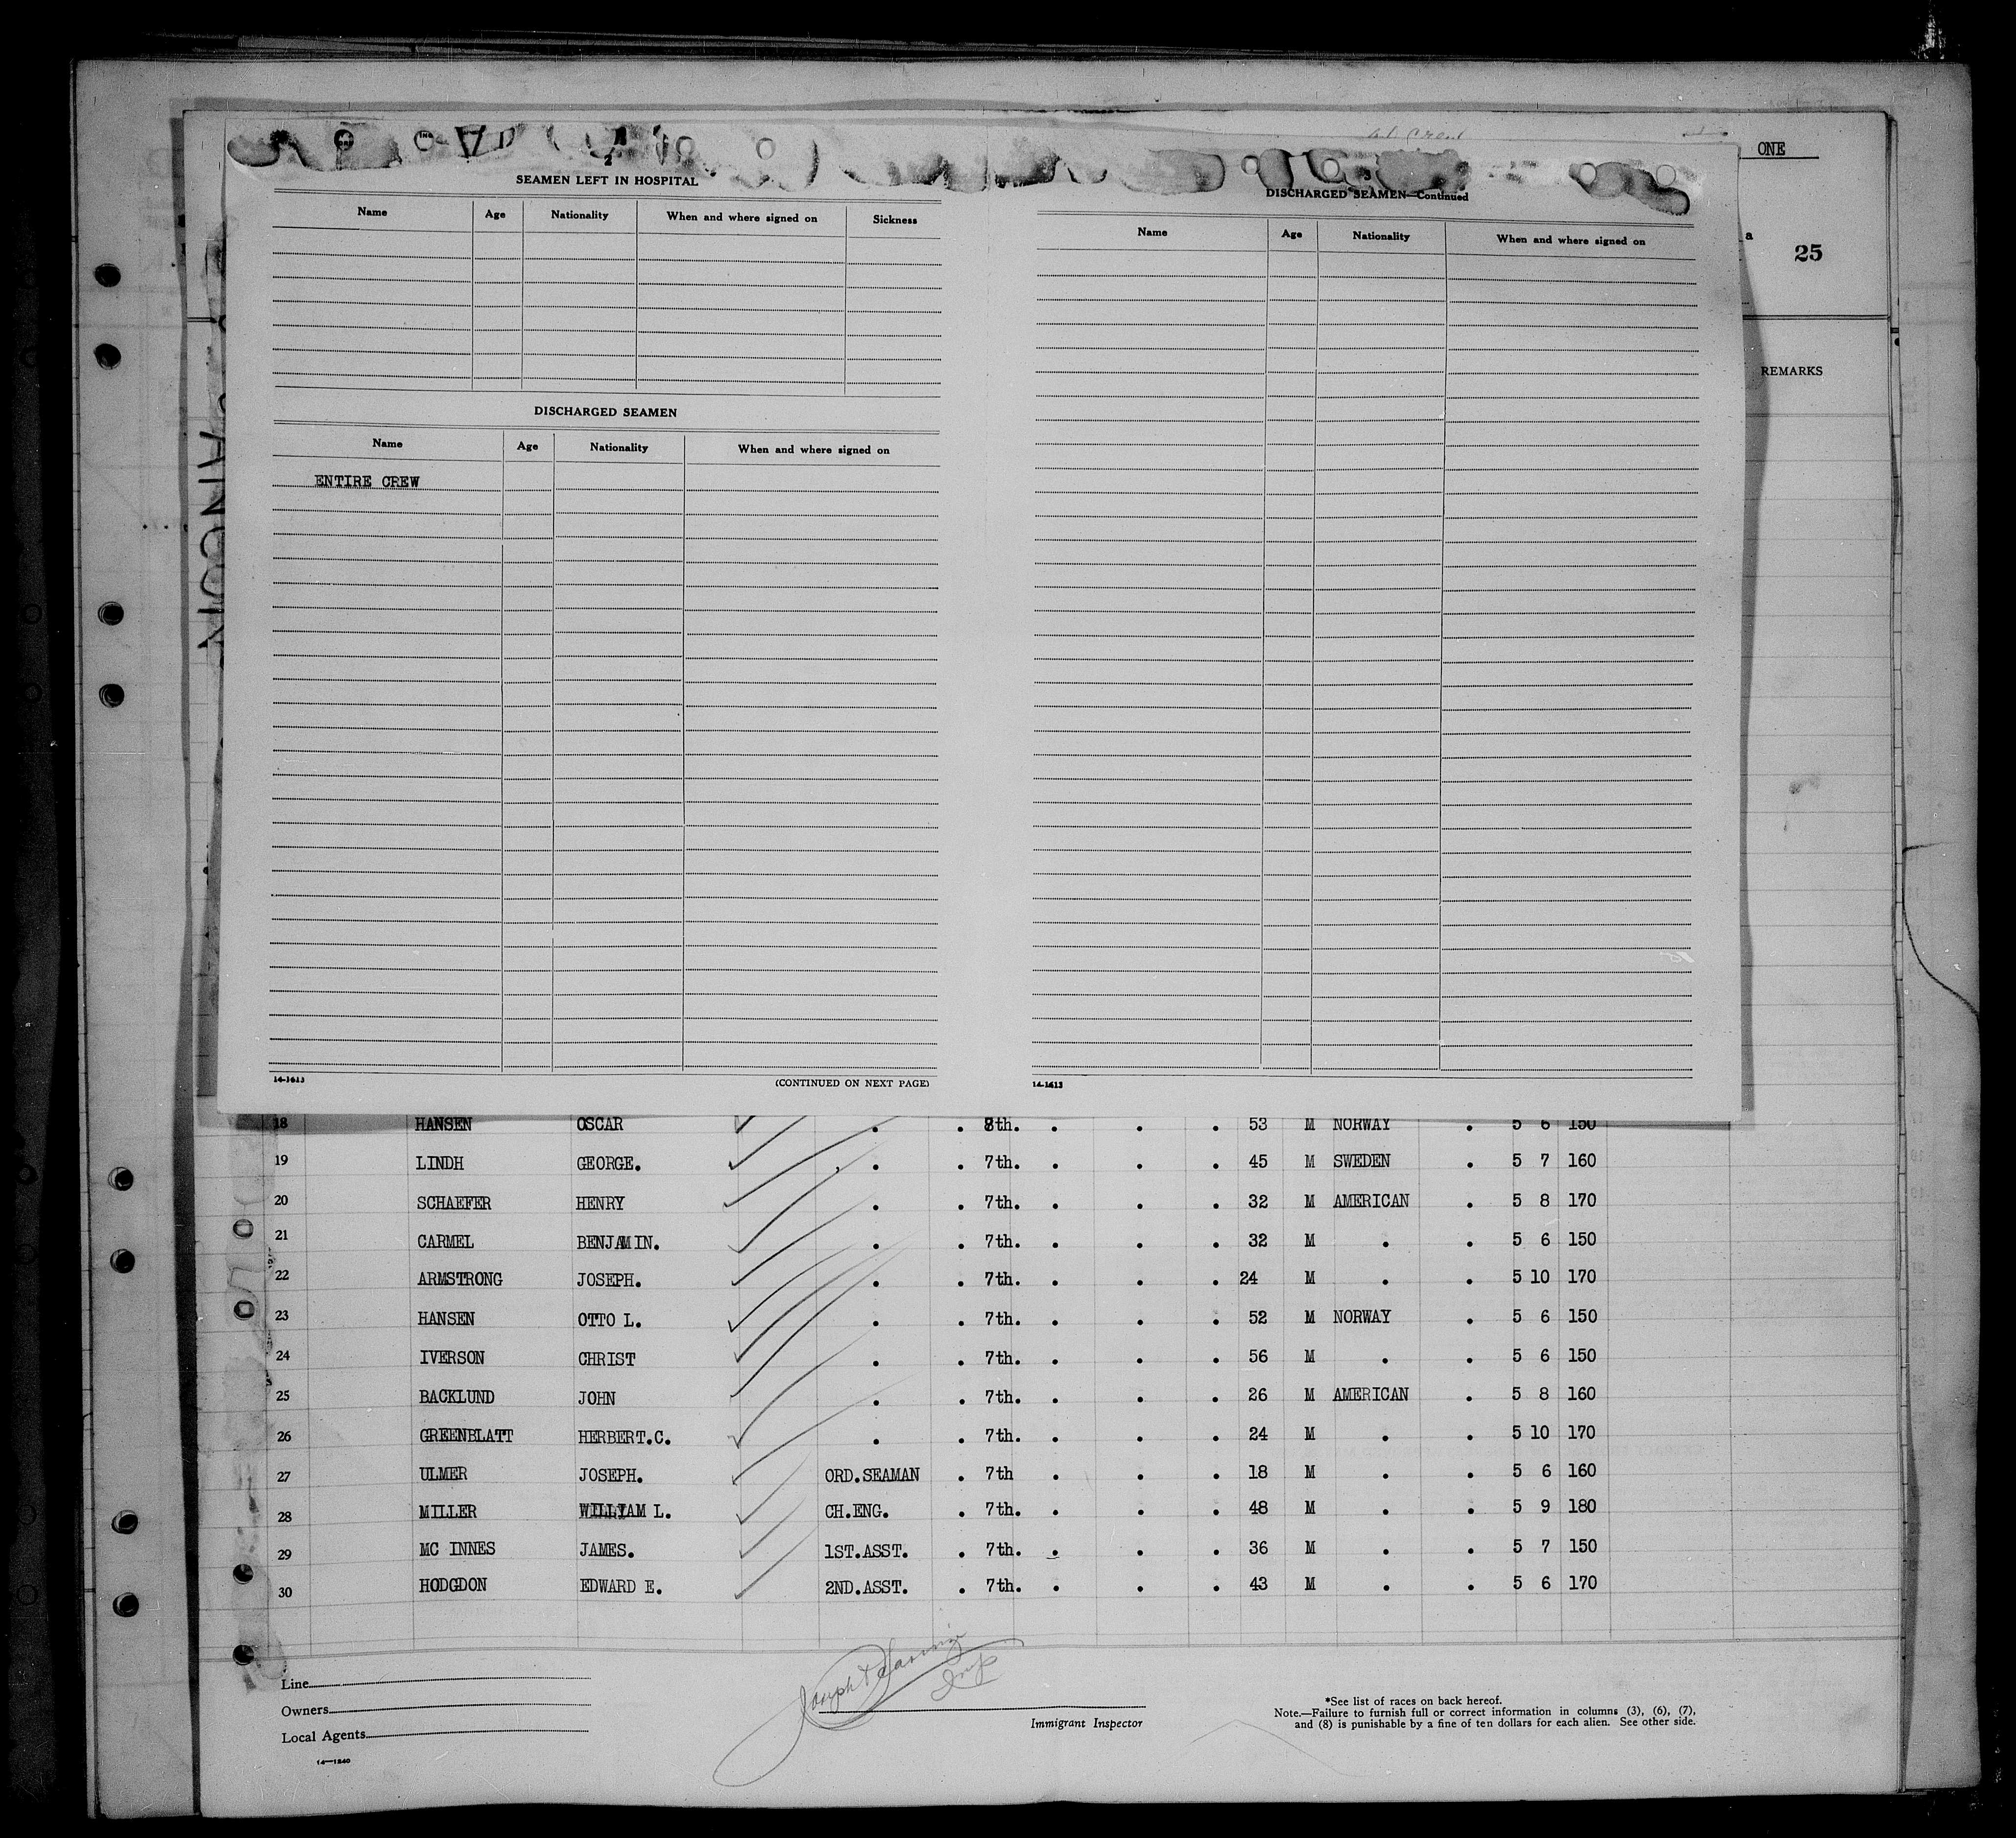 ONE
a
25
REMARKS
ANCON
2
SEAMEN LEFT IN HOSPITAL
Name Age Nationality When and where signed on Sickness
DISCHARGED SEAMEN
Name Age Nationality When and where signed on
ENTIRE CREW
14-1613
(CONTINUED ON NEXT PAGE)
3
DISCHARGED SEAMEN—Continued
Name Age Nationality When and where signed on
14-1613
18 HANSEN OSCAR . . 8th. . . . 53 M NORWAY . 5 6 150
19 LINDH GEORGE. . . 7th. . . . 45 M SWEDEN . 5 7 160
20 SCHAEFER HENRY . . 7th. . . . 32 M AMERICAN . 5 8 170
21 CARMEL BENJAMIN. . . 7th. . . . 32 M . . 5 6 150
22 ARMSTRONG JOSEPH. . . 7th. . . . 24 M . . 5 10 170
23 HANSEN OTTO L. . . 7th. . . . 52 M NORWAY . 5 6 150
24 IVERSON CHRIST . . 7th. . . . 56 M . . 5 6 150
25 BACKLUND JOHN . . 7th. . . . 26 M AMERICAN . 5 8 160
26 GREENBLATT HERBERT.C. . . 7th. . . . 24 M . . 5 10 170
27 ULMER JOSEPH. ORD.SEAMAN . 7th . . . 18 M . . 5 6 160
28 MILLER WILLIAM L. CH.ENG. . 7th. . . . 48 M . . 5 9 180
29 MC INNES JAMES. 1ST.ASST. . 7th. . . . 36 M . . 5 7 150
30 HODGDON EDWARD E. 2ND.ASST. . 7th. . . . 43 M . . 5 6 170
Line
Owners
Local Agents
14—1240
Joseph
Insp
Immigrant Inspector
*See list of races on back hereof.
Note.—Failure to furnish full or correct information in columns (3), (6), (7),
and (8) is punishable by a fine of ten dollars for each alien. See other side.